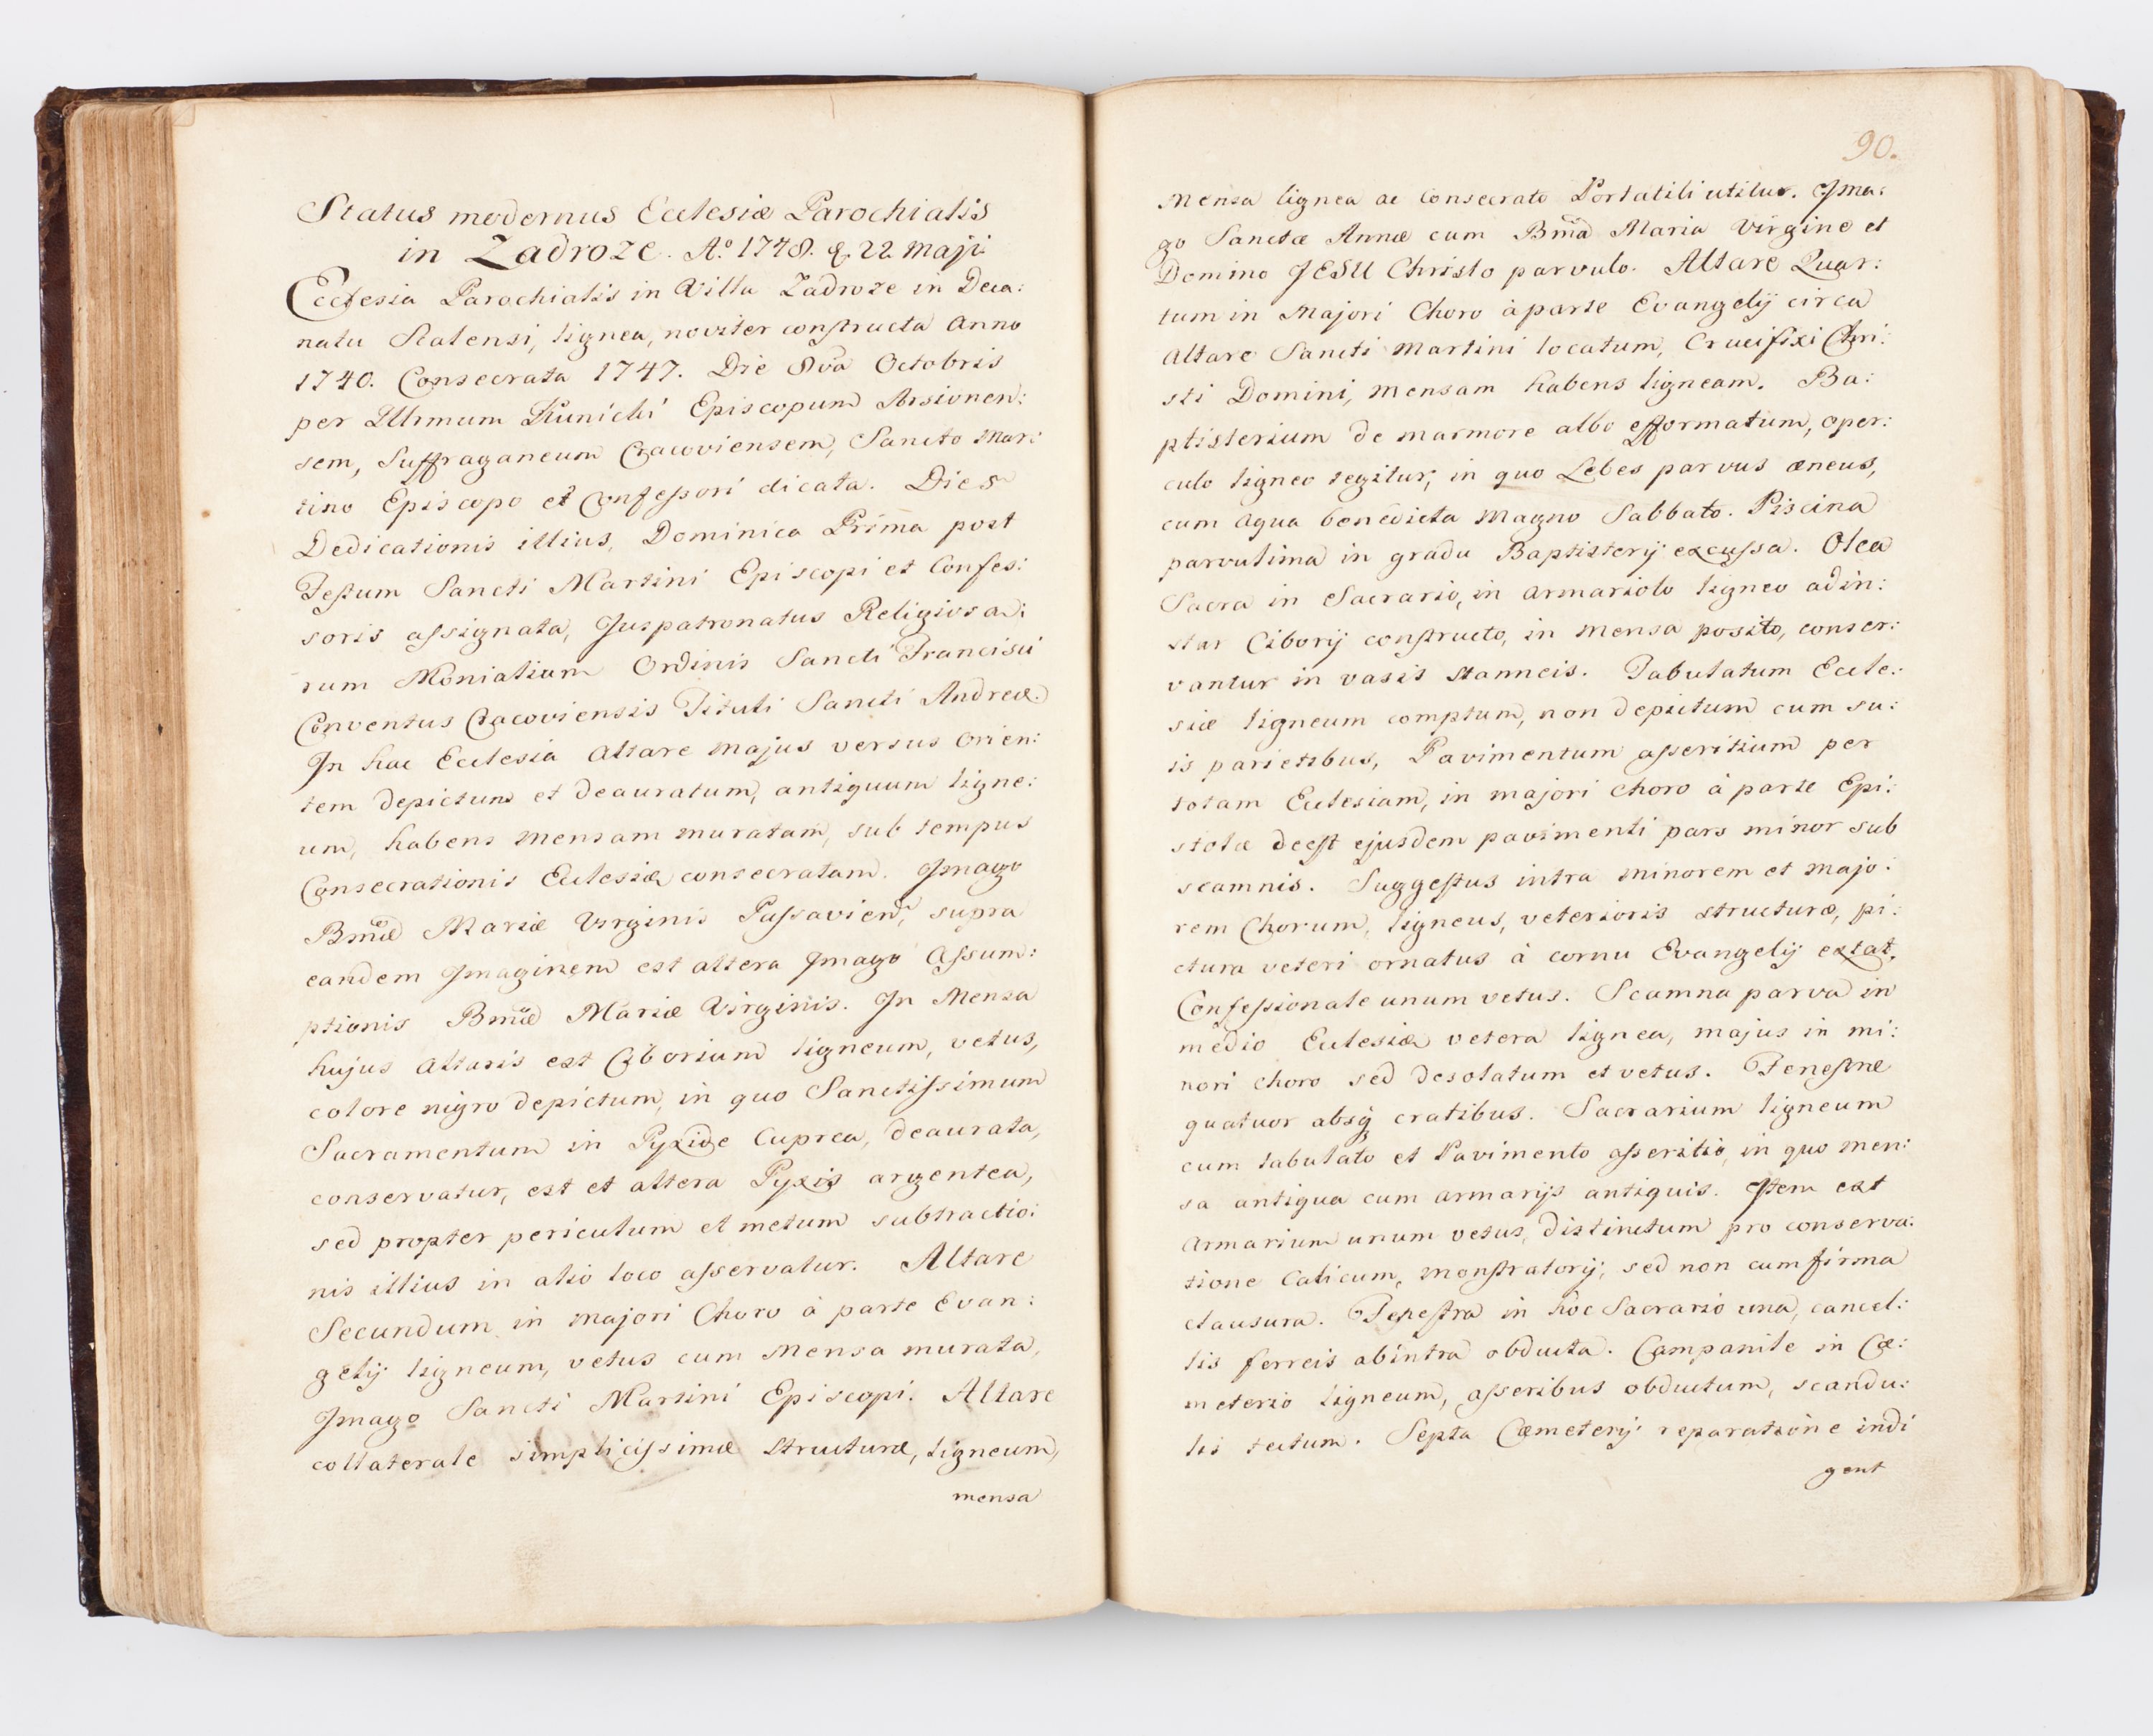 Status modernus Ecclesiæ Parochialis
in Zadroze. Aº. 1748. d. 22 Maji
Ecclesia Parochialis in Villa Zadroze in Deca:
natu Scalensi, lignea, noviter constructa Anno
1740. Consecrata 1747. Die 8va Octobris
per Illmum Kunicki Episcopum Arsionen:
sem, Suffraganeum Cracoviensem, Sancto Mar:
tino Episcopo et Confessori dicata. Dies
Dedicationis illius, Dominica Prima post
Festum Sancti Martini Episcopi et Confes:
soris assignata, Juspatronatus Religiosa:
rum Monialium Ordinis Sancti Francisci
Conventus Cracoviensis Tituli Sancti Andreæ.
In hac Ecclesia Altare majus versus Orien:
tem depictum et deauratum, antiquum ligne:
um, habens mensam muratam, sub tempus
Consecrationis Ecclesiæ consecratam. Imago
Bmæ Mariæ Virginis Passavien, supra
eandem Imaginem est altera Imago Assum:
ptionis Bmæ Mariæ Virginis. In Mensa
hujus Altaris est Ciborium ligneum, vetus,
colore nigro depictum, in quo Sanctissimum
Sacramentum in Pyxide Cuprea, deaurata,
conservatur, est et altera Pyxis argentea,
sed propter periculum et metum subtractio:
nis illius in alio loco asservatur. Altare
Secundum in majori Choro à parte Evan:
gelij ligneum, vetus cum Mensa murata,
Imago Sancti Martini Episcopi. Altare
collaterale simplicissimæ structuræ, ligneum,
mensa
90.
Mensa lignea ac consecrato Portatili utitur. Ima:
go Sanctæ Annæ cum Bmã Maria Virgine et
Domino JESU Christo parvulo. Altare Quar:
tum in Majori Choro à parte Evangelij circa
Altare Sancti Martini locatum, Crucifixi Chri:
sti Domini, mensam habens ligneam. Ba:
ptisterium de marmore albo efformatum, oper:
culo ligneo tegitur, in quo Lebes parvus æneus,
cum Aqua benedicta Magno Sabbato. Piscina
parvulima in gradu Baptisterij excussa. Olea
Sacra in Sacrario, in armariolo ligneo ad in:
star Ciborij constructo, in mensa posito, conser:
vantur in vasis stanneis. Tabulatum Eccle:
siæ ligneum comptum, non depictum cum su:
is parietibus, Pavimentum asseritium per
totam Ecclesiam, in majori choro à parte Epi:
stolæ deest ejusdem pavimenti pars minor sub
scamnis. Suggestus intra minorem et majo:
rem Chorum, ligneus, veterioris structuræ, pi:
ctura veteri ornatus à cornu Evangelij extat.
Confessionale unum vetus. Scamna parva in
medio Ecclesiæ vetera lignea, majus in mi:
nori choro sed desolatum et vetus. Fenestræ
quatuor absq cratibus. Sacrarium ligneum
cum tabulato et Pavimento asseritio, in quo men:
sa antiqua cum armarijs antiquis. Item est
Armarium unum vetus, distinctum pro conserva:
tione Calicum, monstratorij, sed non cum firma
clausura. Fenestra in hoc Sacrario una, cancel:
lis ferreis abintra obducta. Campanile in Cæ:
meterio ligneum, asseribus obductum, scandu:
lis tectum. Septa Cæmeterij reparatione indi
gent